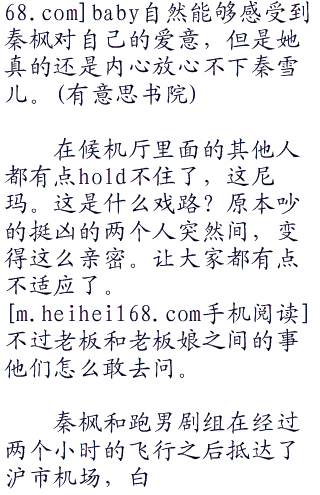 68.com]baby自然能够感受到
秦枫对自己的爱意，但是她
真的还是内心放心不下秦雪
儿。(有意思书院)
在候机厅里面的其他人
都有点hold不住了，这尼
玛。这是什么戏路？原本吵
的挺凶的两个人突然间，变
得这么亲密。让大家都有点
不适应了。
[m.heihei168.com手机阅读]
不过老板和老板娘之间的事
他们怎么敢去问。
秦枫和跑男剧组在经过
两个小时的飞行之后抵达了
沪市机场，白